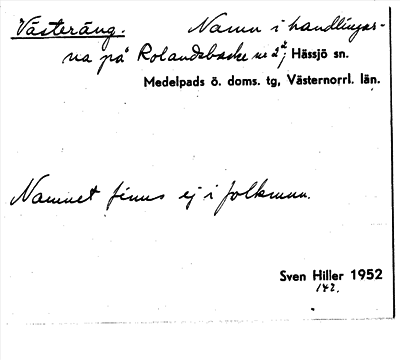 "Västeräng. Namn i handlingar-
na på" Rolandsbacke nr 2²; Hässjö sn.
Medelpads ö. doms. tg, Västernorrl. län.
Namnet finns ej i folkmun.
Sven Hiller 1952
142.